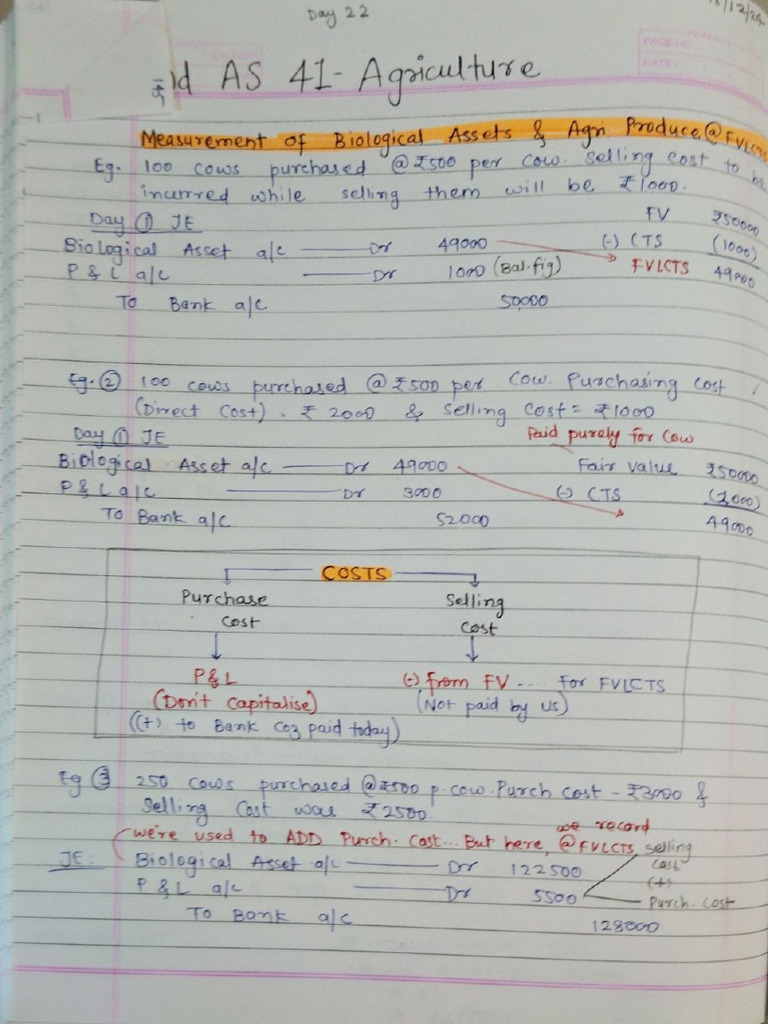 Day 22
/12/24
Ind AS 41 - Agriculture
PAGE NO.
DATE:
Measurement of Biological Assets & Agri Produce @ FVLCTS
Eg. 100 cows purchased @ ₹500 per cow. Selling cost to be
incurred while selling them will be ₹1000.
Day ① JE FV ₹50000
Biological Asset a/c —— Dr 49000 (-) CTS (1000)
P & L a/c —— Dr 1000 (Bal.fig) FVLCTS 49000
To Bank a/c 50000
Eg. ② 100 cows purchased @ ₹500 per cow. Purchasing cost
(Direct Cost). ₹ 2000 & Selling Cost = ₹1000
Day ① JE Paid purely for cow
Biological Asset a/c —— Dr 49000 Fair Value ₹50000
P & L a/c —— Dr 3000 (-) CTS (1,000)
To Bank a/c 52000 49000
COSTS
Purchase Selling
cost cost
P&L (-) from FV .... for FVLCTS
(Don't capitalise) (Not paid by us)
((+) to Bank coz paid today)
Eg ③ 250 cows purchased @ ₹500 p.cow. Purch cost - ₹3000 &
Selling Cost was ₹2500.
we record
(we're used to ADD Purch. cost... But here, @ FVLCTS selling
JE: Biological Asset a/c —— Dr 122500 cost
(+)
P & L a/c —— Dr 5500 Purch. cost
To Bank a/c 128000